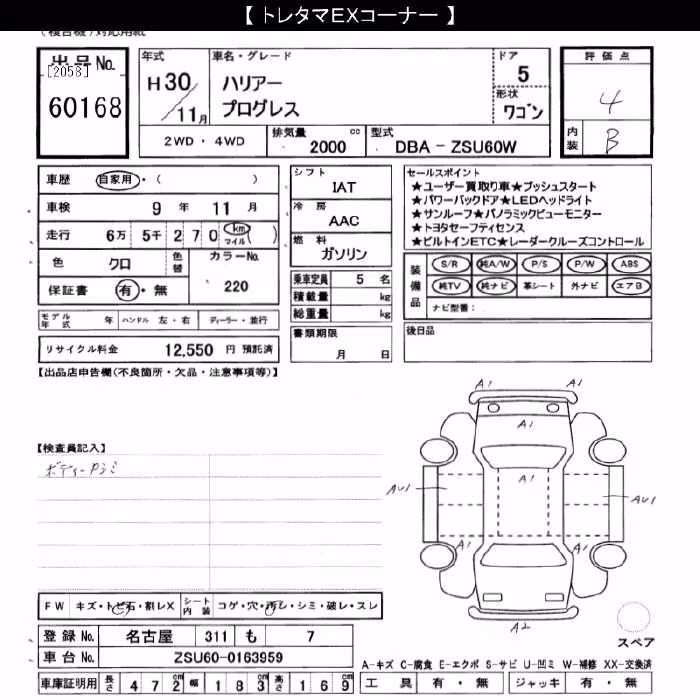 【 トレタマEXコーナー 】
(複合機)対応用紙
出品No.
[2058]
60168
年式
H30/11月
車名・グレード
ハリアー
プログレス
ドア
5
形状
ワゴン
評価点
4
内装
B
2WD・4WD
排気量
2000 cc
型式
DBA - ZSU60W
車歴
自家用・( )
車検
9年 11月
走行
6万 5千 2 7 0 (km マイル)
色
クロ
色替
カラーNo.
220
保証書
有・無
シフト
IAT
冷房
AAC
燃料
ガソリン
乗車定員 5名
積載量 kg
総重量 kg
書類期限
月 日
セールスポイント
★ユーザー買取り車★プッシュスタート
★パワーバックドア★LEDヘッドライト
★サンルーフ★パノラミックビューモニター
★トヨタセーフティセンス
★ビルトインETC★レーダークルーズコントロール
装備品
S/R 純A/W P/S P/W ABS
純TV 純ナビ 革シート 外ナビ エアB
ナビ型番:
後日品
モデル年式 年 ハンドル 左・右 ディーラー・並行
リサイクル料金 12,550 円 預託済
【出品店申告欄(不良箇所・欠品・注意事項等)】
【検査員記入】
ボディーPシミ
A1 A1
A1
A1
AU1 AU1
A1 A1
A2
スペア
FW キズ・トビ石・割レX
シート内装 コゲ・穴・汚レ・シミ・破レ・スレ
登録No. 名古屋 311 も 7
車台No. ZSU60-0163959
車庫証明用 長さ 472cm 幅 183cm 高さ 169cm
A-キズ C-腐食 E-エクボ S-サビ U-凹ミ W-補修 XX-交換済
工具 有・無 ジャッキ 有・無